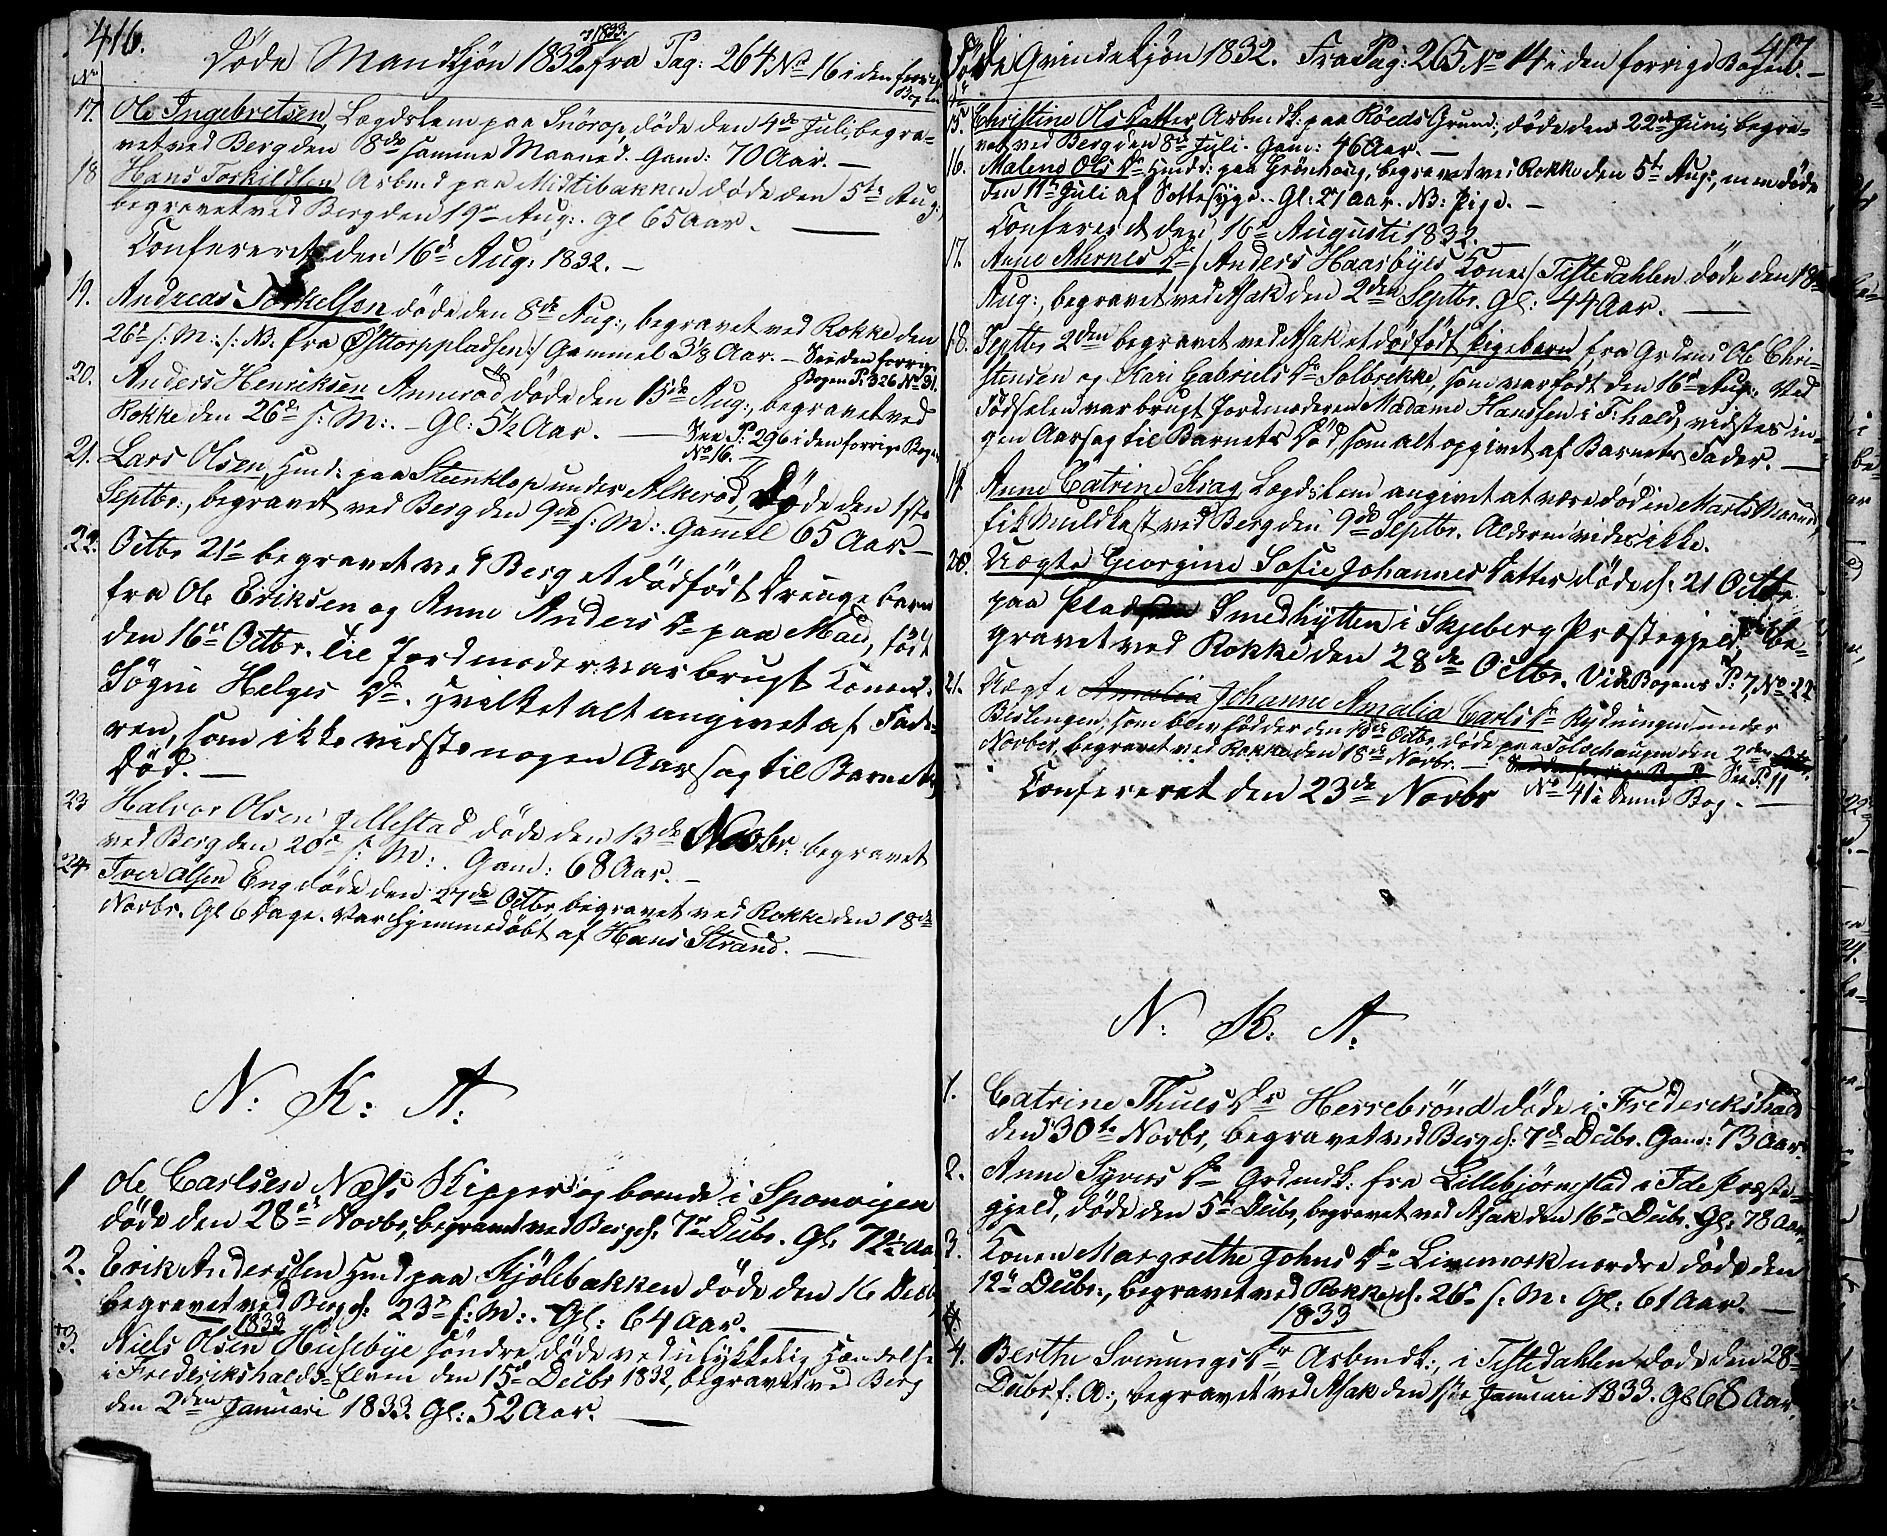 416.
Døde Mandkjøn 1832 og 1833. fra Pag: 264 No 16 i den forrige Bog.
No
17. Ole Ingebretsen, Lægdslem paa Snörop, døde den 4de Juli, begra-
vet ved Berg den 8de samme Maaned. Gaml: 70 Aar. —
18 Hans Torkildsen Arbmd paa Midtibakken døde den 5te Aug:,
begravet ved Berg den 19de Aug:. Gl 65 Aar. —
Confereret den 16de Aug: 1832. —
19. Andreas Torkelsen døde den 8de Aug:, begravet ved Rokke den
26de s: M: /: NB. fra Østtorppladsen :/ Gammel 3 1/8 Aar. — See den forrige
Bogen P: 326 No 31.
20. Anders Henriksen Annerød døde den 15de Aug:, begravet ved
Rokke den 26de s: M:. — Gl: 5 1/2 Aar. — See P: 296 i den forrige Bog
No 16. —
21. Lars Olsen, Hmd: paa Steenklop under Alkerød, døde den 1ste
Septbr:, begravet ved Berg den 9de s: M: Gammel 65 Aar. —
22. Octbr 21de begravet ved Berg et dødfødt Drengebarn
fra Ole Eriksen og Anne Anders Dr paa Moed, født
den 16de Octbr. Til Jordmoder var brugt Konen
Søgni Helges Dr. Hvilket alt angivet af Fade-
ren, som ikke vidste nogen Aarsag til Barnets
Død. —
23 Halvor Olsen Jellestad døde den 13de Novbr. begravet
ved Berg den 20de s: M:. Gaml: 68 Aar. —
24. Iver Olsen Eng døde den 27de Octbr, begravet ved Rokke den 18de
Novbr. Gl 6 Dage. Var hjemmedøbt af Hans Strand. —
N: K: A:
1 Ole Carlsen Næss Skipper og boende i Sponvigen
døde den 28de Novbr, begravet ved Berg d: 7de Decbr. Gl: 72 1/2 Aa
2. Erik Anderssen Hmd paa Kjölebakken døde den 16 Decbr,
begravet ved Berg d: 23de s: M:. Gl: 64 Aar. —
1833
3. Niels Olsen Huseby söndre døde ved ulykkelig Hændelse
i Frederikshalds Elven den 15de Decbr 1832, begravet ved Berg
den 2den Januari 1833. Gl: 52 Aar. —
417
Døde Qvindekjøn 1832. Fra Pag: 265 No 14 i den forrige Bogen. —
No
15. Christine Ols Datter Arbmdk: paa Röeds Grund, døde den 22de Juni, begra-
vet ved Berg den 8de Juli. Gaml: 46 Aar. —
16. Malene Ols Dr Hmdd: paa Grönhoug, begravet ved Rokke den 5te Aug:, men døde
den 11te Juli af Sottesyge. Gl: 27 Aar. NB: Pige. —
Confereret den 16de Augusti 1832. —
17. Anne Ahrnes Dr /: Anders Haarbyes Kone :/ Tistedahlen døde den 18de
Aug:, begravet ved Asak den 2den Septbr. Gl: 44 Aar. —
18. Septbr 2den begravet ved Asak et dødfødt Pigebarn, fra Grdmd Ole Chri-
stensen og Kari Gabriels Dr Solbrekke, som var født den 16de Aug:. Ved
Fødselen var brugt Jordmoderen Madame Hanssen i F: hald, vidstes in-
gen Aarsag til Barnets Død, som alt opgivet af Barnets Fader. —
19 Anne Catrine Krag Lægdslem angivet at være død i Marts Maaned,
fik Muldkast ved Berg den 9de Septbr. Alderen vides ikke.
20. Uægte Georgine Sofie Johannes Datter døde d: 21 Octbr
paa Pladsen Smedhytten i Skjeberg Præstegjeld, be-
gravet ved Rokke den 28de Octbr. Vide Bogens P: 7, No 22
21. Uægte Amalia Johanne Amalia Carls Dr Rydningen under
Bislingen, som blev född den 13de Octbr, døde paa Tolschaugen den 2den
Novbr, begravet ved Rokke den 18de Novbr. — See P: 11
No 41 i denne Bog. —
Confereret den 23de Novbr
N: K: A:
1. Catrine Thues Dr Herrebrönd døde i Frederikshald
den 30te Novbr, begravet ved Berg d: 7de Decbr. Gaml: 73 Aar.
2. Anne Syvers Dr Grdmdk: fra Lillebjørnestad i Ide Præste-
gjeld, døde den 5te Decbr, begravet ved Asak den 16de Decbr. Gl: 78 Aar.
3. Konen Margrethe Johns Dr Livemork nordre døde den
12te Decbr:, begravet ved Rokke d: 26de s: M: Gl: 61 Aar. —
1833
4. Berthe Svenungs Dr Arbmdk:, i Tistedahlen døde den 28de
Decbr f: A:, begravet ved Asak den 1ste Januari 1833. Gl: 68 Aar.